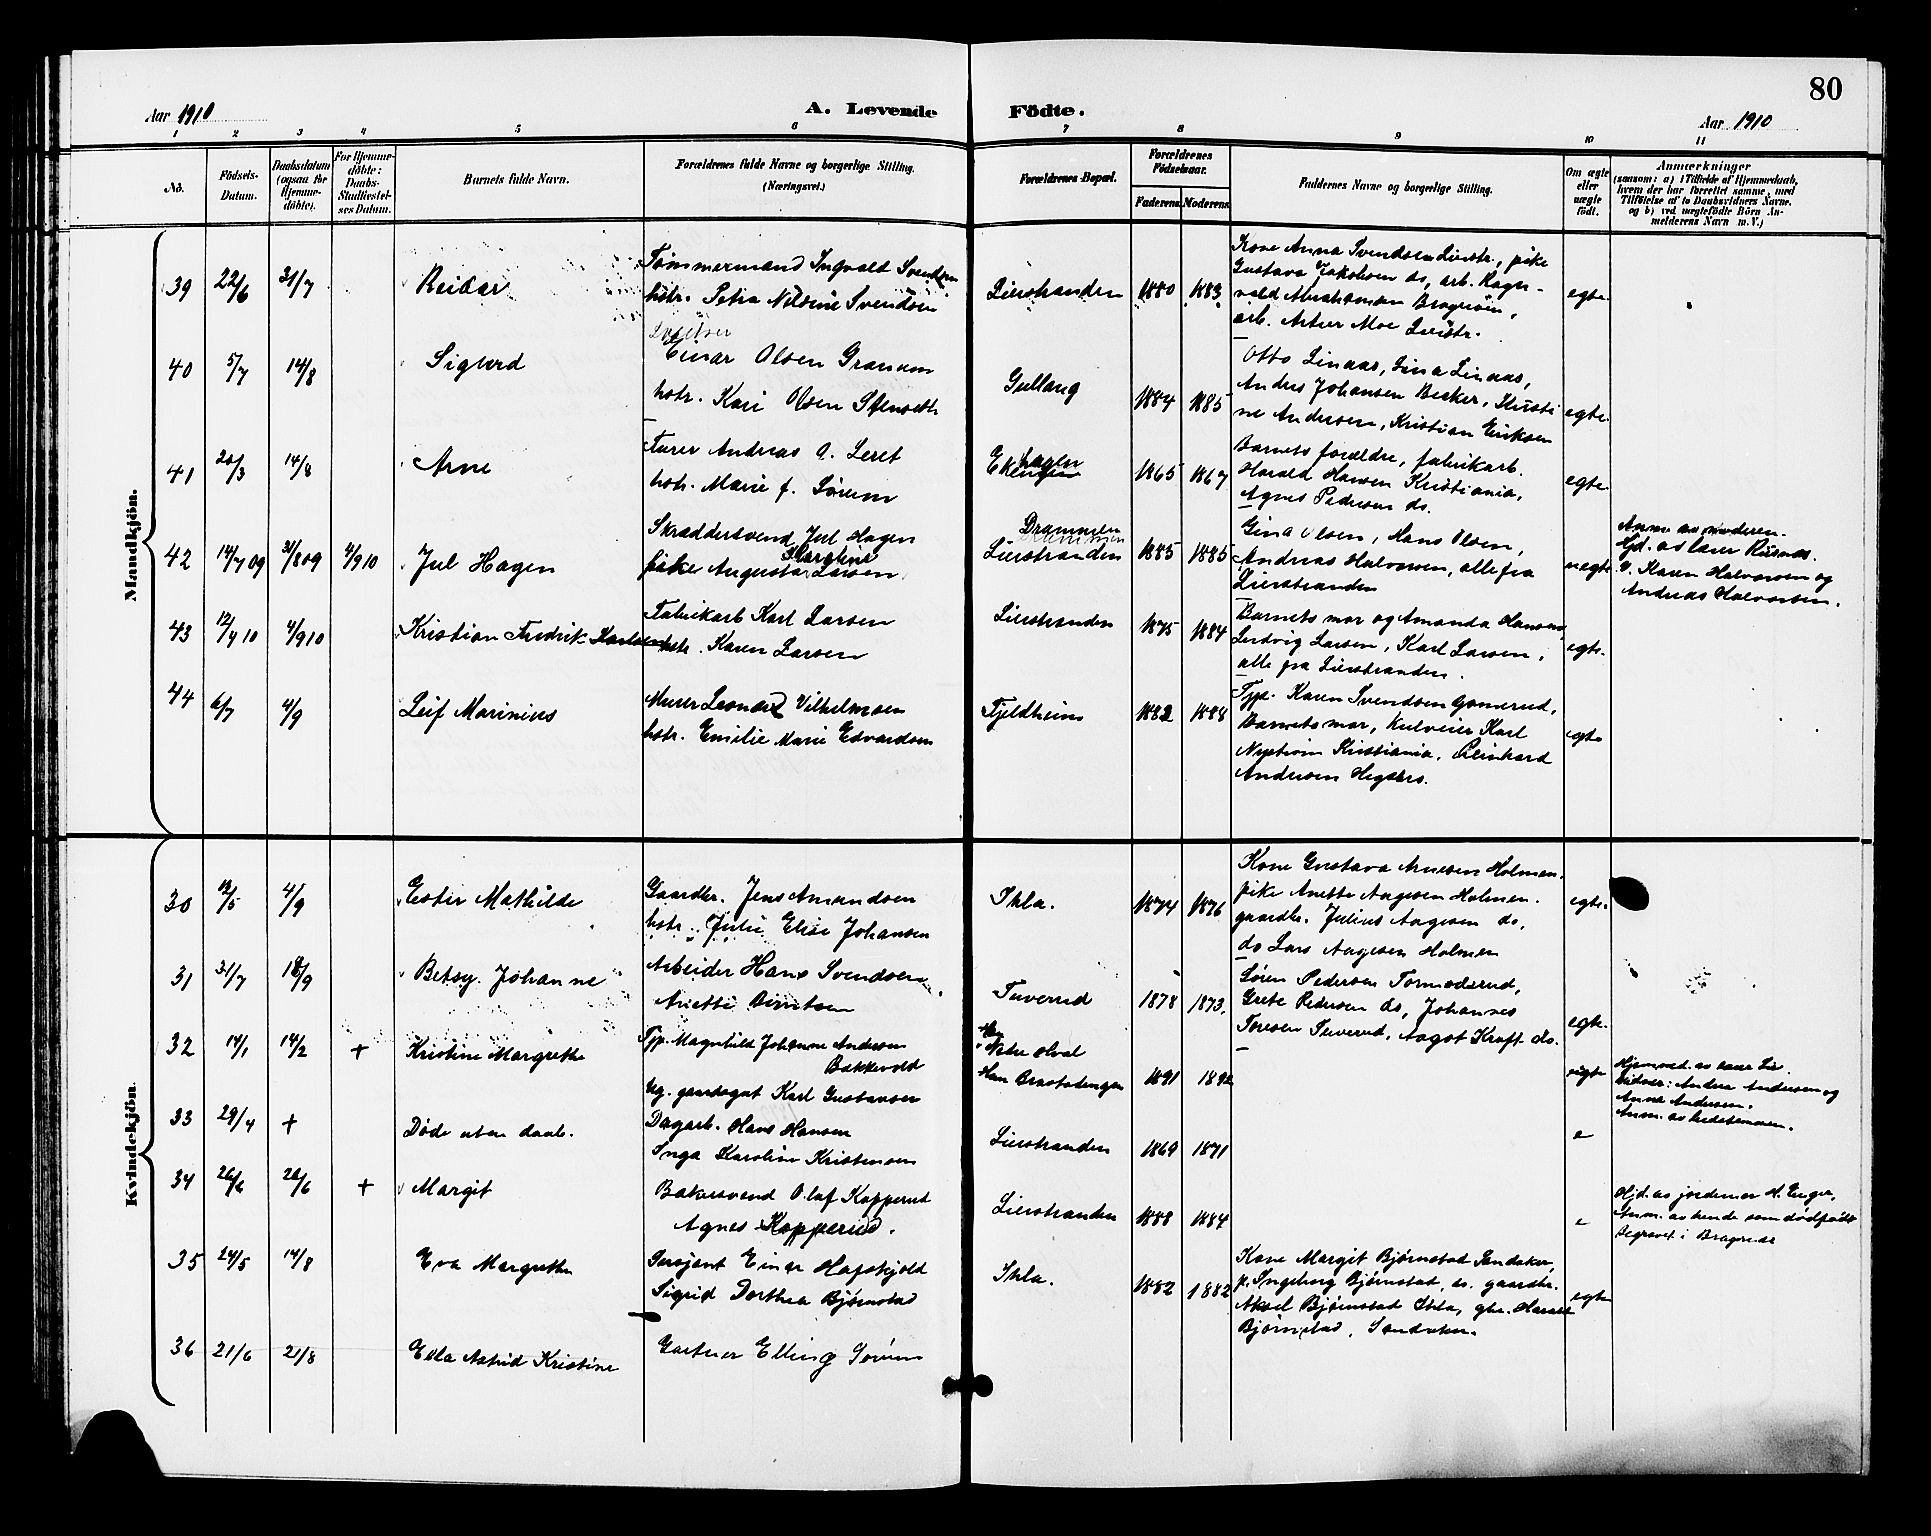 80
Aar 1910
A. Levende Födte.
Aar 1910
1 2 3 4 5 6 7 8 9 10 11
No.
Födsels-Datum.
Daabsdatum (ogsaa for Hjemme-döbte).
For Hjemme-döbte: Daabs-Stadfæstel-ses Datum.
Barnets fulde Navn.
Forældrenes fulde Navne og borgerlige Stilling.
(Næringsvei.)
Forældrenes Bopæl.
Forældrenes Födselsaar.
Faderens Moderens
Faddernes Navne og borgerlige Stilling.
Om ægte eller uægte födt.
Anmærkninger
(saasom: a) i Tilfælde af Hjemmedaab,
hvem der har forrettet samme, med
Tilföielse af to Daabsvidners Navne.
og b) ved uægtefödte Börn An-
melderens Navn m. V.)
Mandkjön.
39 22/6 31/7 Reidar
Tømmermand Ingvald Svendsen
hstr. Petra Nilsine Svendsen
Lierstranden 1880 1883
Kone Anna Svendsen Lierstr., pike
Gustava Jakobsen ds, arb. Ragn-
vald Abrahamsen Bragerøen,
arb. Artur Moe Lierstr.
egte
40 5/7 14/8 Sigurd
Einar Olsen Granum
hstr. Kari Olsen Stenseth
Gullaug 1884 1885
Otto Linaas, Gina Linaas,
Anders Johansen Becker, Kristi
ne Andersen, Kristian Eriksen
egte
41 20/3 14/8 Arne
Furer Andreas A. Leret
hstr. Marie f. Sørum
1865 1867
Barnets forældre, fabrikarb.
Harald Hansen Kristiania,
Agnes Pedersen ds.
egte
42 14/7 09 31/8 09 4/9 10 Jul Hagen
Skræddersvend Jul Hagen
pike Augusta Karoline Larsen
Drammen
Lierstranden 1885 1885
Gina Olsen, Hans Olsen,
Andreas Halvorsen, alle fra
Lierstranden
uegte
Anm. av moderen.
Hjd. av lærer
V. Karen Halvorsen og
Andreas Halvorsen.
43 12/4 10 4/9 10 Kristian Fredrik Karlsen
Fabrikarb Karl Larsen
hstr. Karen Larsen
Lierstranden 1875 1884
Barnets mor og Amanda Hansen,
Ludvig Larsen, Karl Larsen,
alle fra Lierstranden.
egte.
44 6/7 4/9 Leif Marinius
Murer Leonard Vilhelmsen
hstr. Emilie Marie Edvardsen
Fjeldheim 1882 1888
Tjp. Karen Svendsen Gomerud,
Barnets mor, Kulveier Karl
Nystrøm Kristiania, Reinhard
Andersen
egte
Kvindekjön.
30 12/5 4/9 Ester Mathilde
Gaardbr. Jens Amundsen
hstr. Julie Elise Johansen
Ihla. 1874 1876
Kone Gustava Arnesen Holmen.
pike Anette Aagesen Holmen.
gaardbr. Julius Aagesen ds.
ds Lars Aagesen Holmen
egte.
31 31/7 18/9 Betsy Johanne
Arbeider Hans Svendsen
Anette Berntsen
Tuverud 1878 1873.
Søren Pedersen Tormodsrud,
Grete Pedersen ds, Johannes
Toresen Tuverud, Aagot Kraft ds.
egte.
32 14/1 14/2 + Kristine Margrethe
Tjp. Magnhild Johanne Andersen
Bakkevold
Ug. gaardsgut Karl Gustavsen
Nedre Hval
1891 1892
uegte
Hjemmed. av
Vidner: Andrea Andersen og
Anna Andersen.
33 29/4 + Døde uten daab.
Dagarb. Hans Hansen
Inga Karoline Kristensen
Lierstranden 1869 1871
e
34 26/6 26/6 + Margit
Bakersvend Olaf Kopperud
Agnes Kopperud.
Lierstranden 1888 1884
e
Hjd. av jordemor H. Enger,
Anm. av hende som dødfødt
Begravet i Bragernes
35 24/5 14/8 Eva Margrethe
Sersjant Einar Hafskjold
Sigrid Dorthea Bjørnstad
Ihla. 1882 1882
Kone Margit Bjørnstad Sandaker,
p. Ingeborg Bjørnstad, ds. gaardbr.
Aksel Bjørnstad Ihla, gbr. Harald
Bjørnstad, Sandaker.
egte
36 21/6 21/8 Ella Astrid Kristine
Gartner Elling Sørum